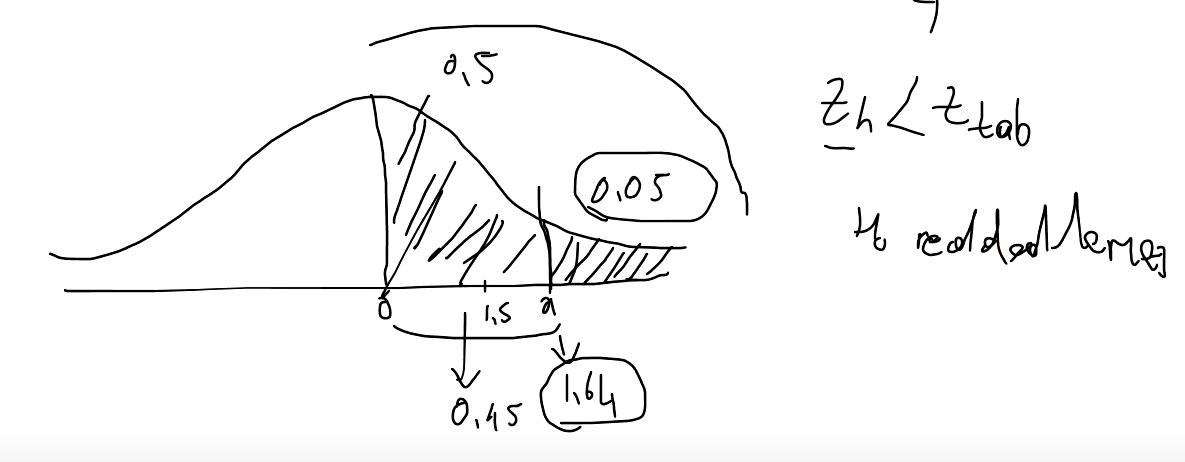 0,5
0,05
0
1,5
a
0,45
1,64
z_h < z_tab
H reddedilemez